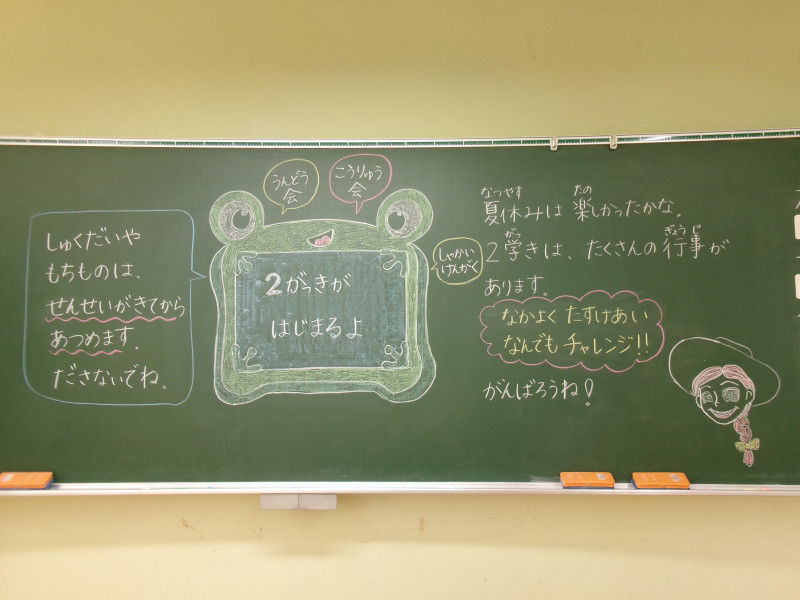 しゅくだいや
もちものは、
せんせいがきてから
あつめます。
ださないでね。
うんどう
会
こうりゅう
会
しゃかい
けんがく
2がっきが
はじまるよ
なつやす たの
夏休みは 楽しかったかな。
がっ ぎょうじ
2学きは、たくさんの行事が
あります。
なかよく たすけあい
なんでも チャレンジ!!
がんばろうね!